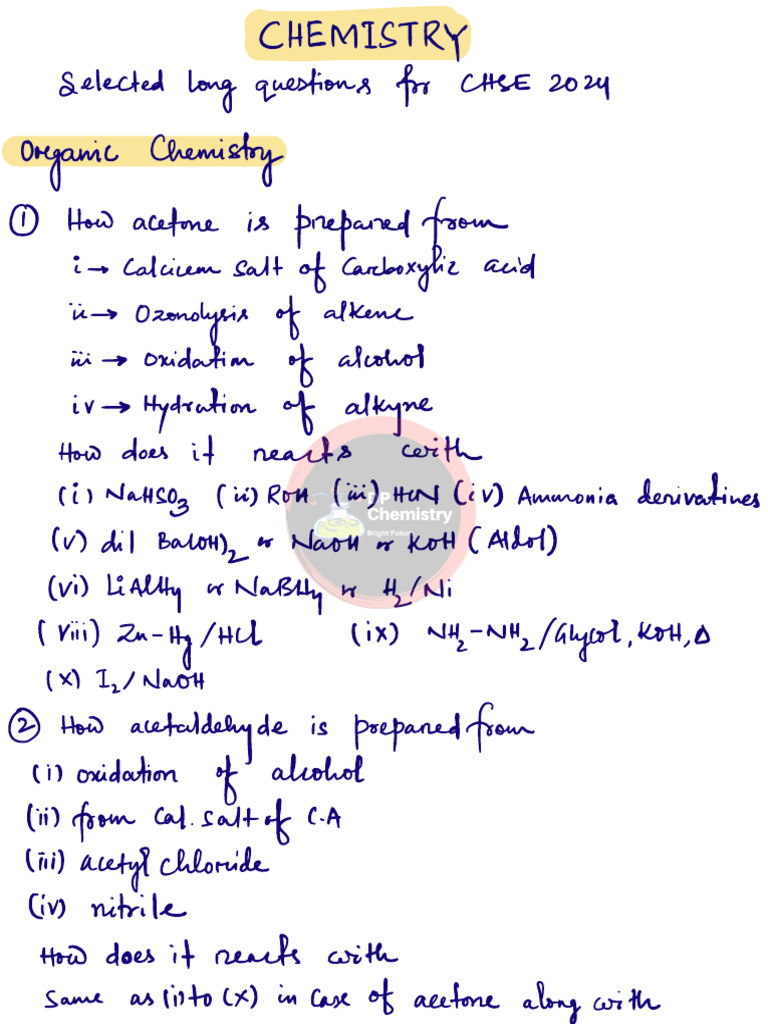 CHEMISTRY
Selected long questions for CHSE 2024
Organic Chemistry
① How acetone is prepared from
i → Calcium salt of Carboxylic acid
ii → Ozonolysis of alkene
iii → Oxidation of alcohol
iv → Hydration of alkyne
How does it reacts with
(i) NaHSO3 (ii) ROH (iii) HCN (iv) Ammonia derivatives
(v) dil Ba(OH)2 or NaOH or KOH (Aldol)
(vi) LiAlH4 or NaBH4 or H2/Ni
(viii) Zn-Hg/HCl (ix) NH2-NH2/Glycol, KOH, Δ
(x) I2/NaOH
② How acetaldehyde is prepared from
(i) oxidation of alcohol
(ii) from Cal. salt of C.A
(iii) acetyl chloride
(iv) nitrile
How does it reacts with
Same as (i) to (x) in case of acetone along with
Chemistry
Bright Future